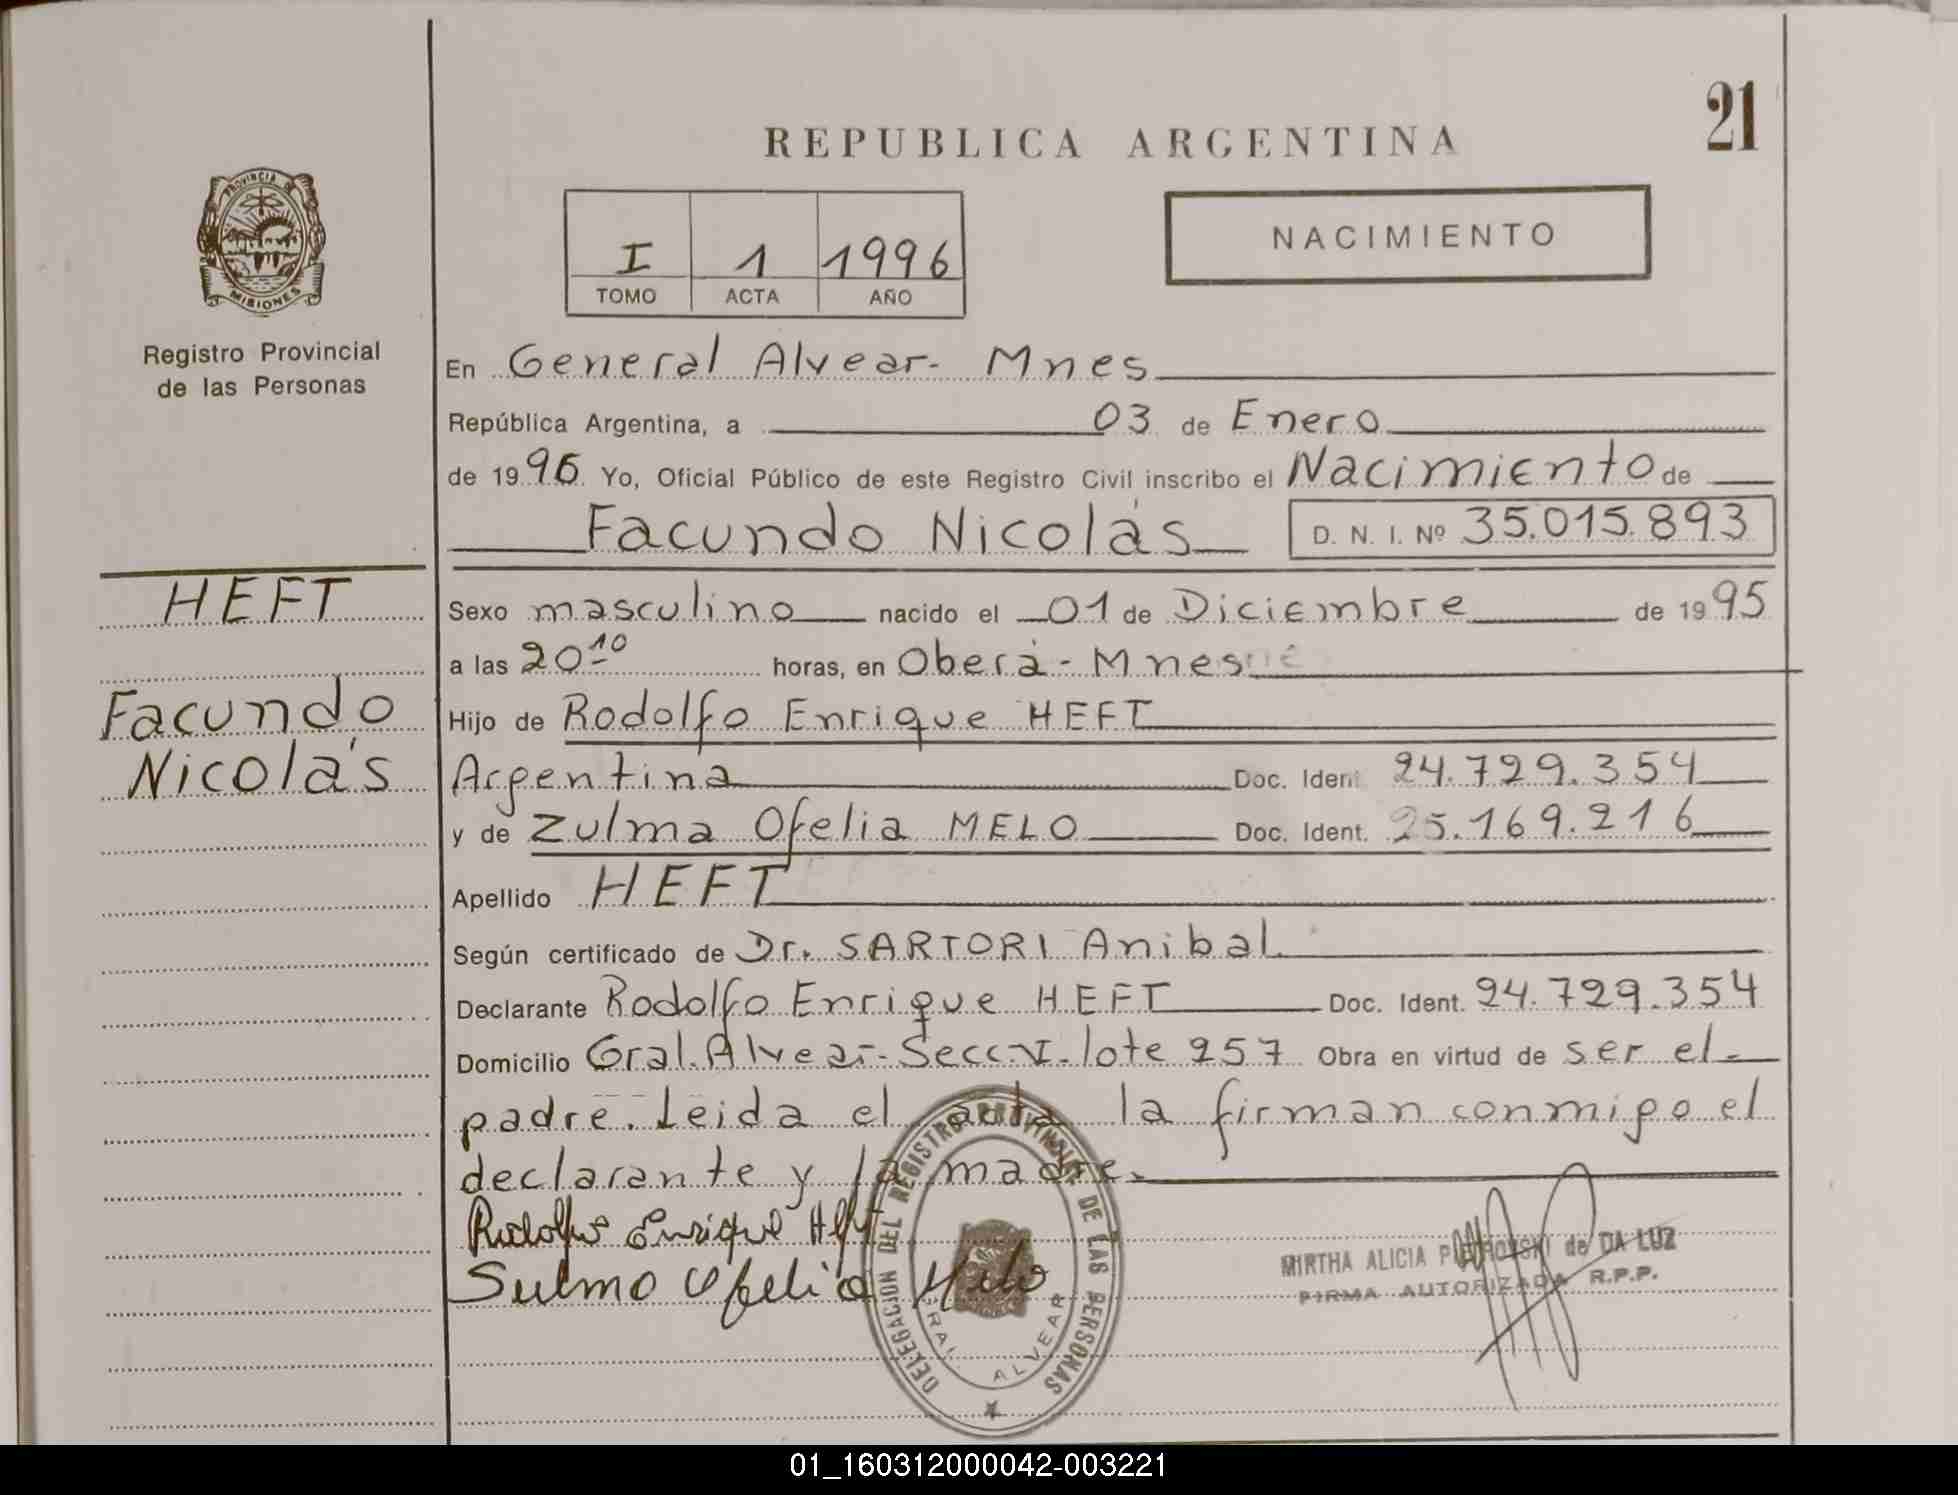 21
REPUBLICA ARGENTINA
PROVINCIA DE
MISIONES
Registro Provincial
de las Personas
I 1 1996
TOMO ACTA AÑO
NACIMIENTO
En General Alvear - Mnes
República Argentina, a 03 de Enero
de 1996 Yo, Oficial Público de este Registro Civil inscribo el Nacimiento de
Facundo Nicolás D. N. I. Nº 35.015.893
HEFT
Facundo
Nicolás
Sexo masculino nacido el 01 de Diciembre de 1995
a las 20 10 horas, en Oberá - Mnes
Hijo de Rodolfo Enrique HEFT
Argentina Doc. Ident 24.729.354
y de Zulma Ofelia MELO Doc. Ident. 25.169.216
Apellido HEFT
Según certificado de Dr. SARTORI Anibal
Declarante Rodolfo Enrique HEFT Doc. Ident. 24.729.354
Domicilio Gral. Alvear - Secc. V - lote 257 Obra en virtud de ser el
padre. Leida el acta la firman conmigo el
declarante y la madre.
Rodolfo Enrique Heft
Sulmo Ofelia Melo
DELEGACION DEL REGISTRO PROVINCIAL DE LAS PERSONAS
GRAL. ALVEAR
MIRTHA ALICIA PIETROVSKI de DA LUZ
FIRMA AUTORIZADA R.P.P.
01_160312000042-003221